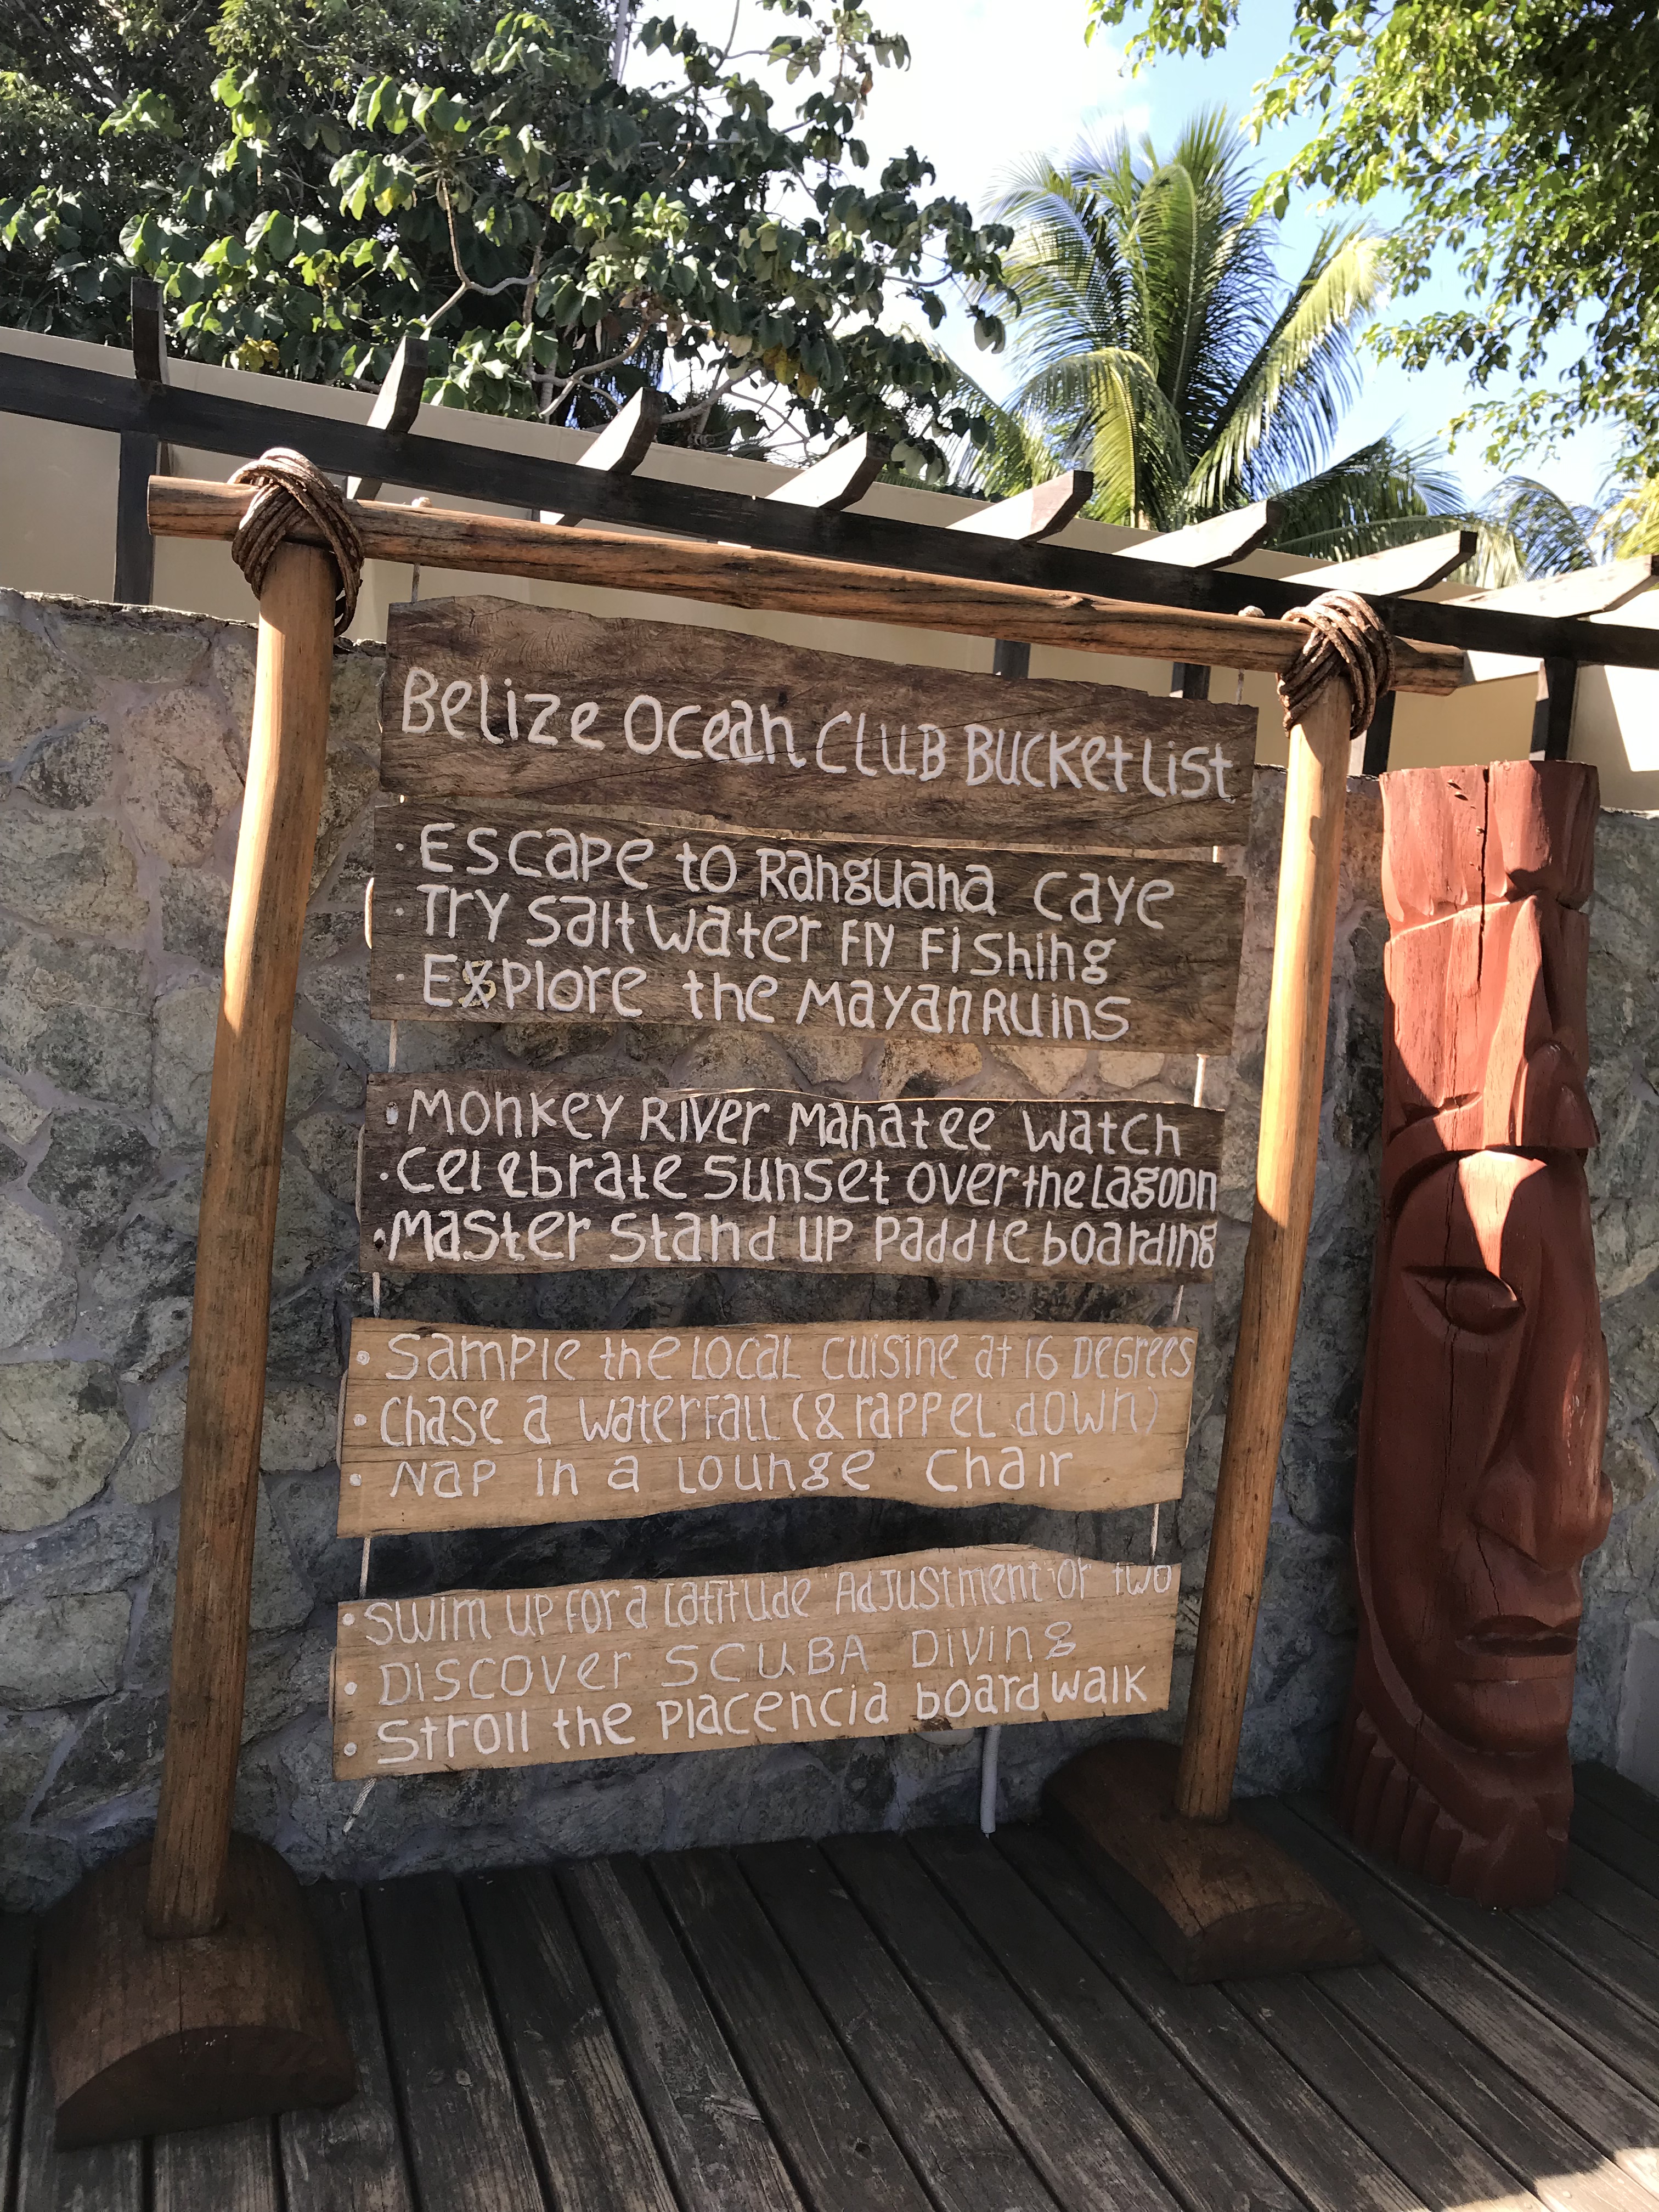 Belize Ocean Club Bucket List
· Escape to Ranguana Caye
· Try Saltwater Fly Fishing
· Explore the Mayan Ruins
· Monkey River Manatee Watch
· Celebrate Sunset over the Lagoon
· Master Stand up Paddleboarding
· Sample the Local Cuisine at 16 Degrees
· Chase a Waterfall (& rappel down)
· Nap in a Lounge Chair
· Swim up for a Latitude "Adjustment" or two
· Discover SCUBA Diving
· Stroll the Placencia boardwalk